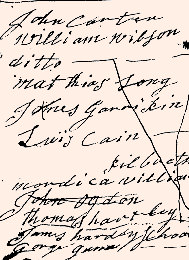 John Carter
William Wilson
ditto
mathias Long
James Garrikin
Luis Cain
Kilbuck
mordica villia
John
thomas hartkey
James hardy
George